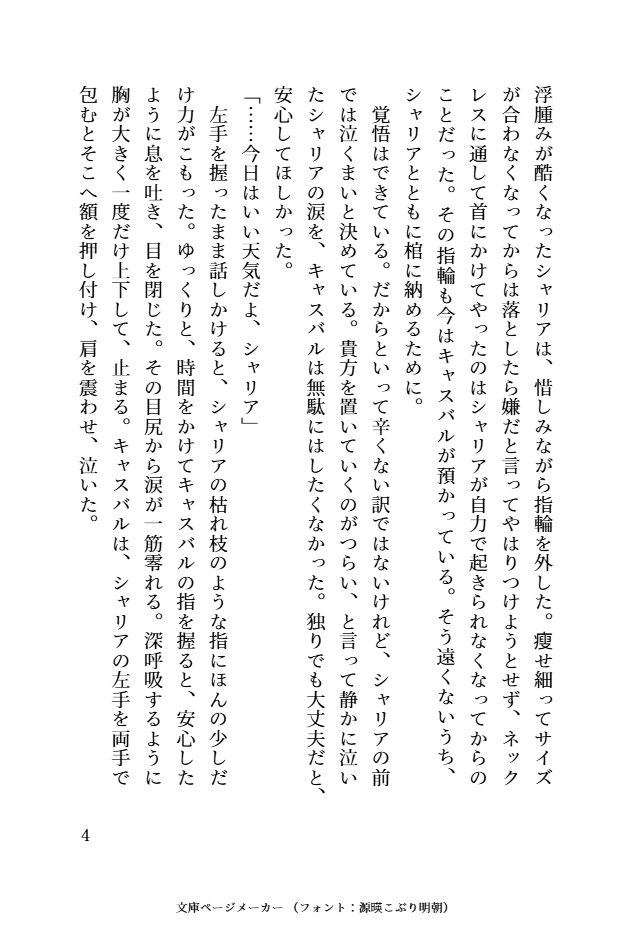 浮腫みが酷くなったシャリアは、惜しみながら指輪を外した。痩せ細ってサイズ
が合わなくなってからは落としたら嫌だと言ってやはりつけようとせず、ネック
レスに通して首にかけてやったのはシャリアが自力で起きられなくなってからの
ことだった。その指輪も今はキャスバルが預かっている。そう遠くないうち、
シャリアとともに棺に納めるために。
覚悟はできている。だからといって辛くない訳ではないけれど、シャリアの前
では泣くまいと決めている。貴方を置いていくのがつらい、と言って静かに泣い
たシャリアの涙を、キャスバルは無駄にはしたくなかった。独りでも大丈夫だと、
安心してほしかった。
「……今日はいい天気だよ、シャリア」
左手を握ったまま話しかけると、シャリアの枯れ枝のような指にほんの少しだ
け力がこもった。ゆっくりと、時間をかけてキャスバルの指を握ると、安心した
ように息を吐き、目を閉じた。その目尻から涙が一筋零れる。深呼吸するように
胸が大きく一度だけ上下して、止まる。キャスバルは、シャリアの左手を両手で
包むとそこへ額を押し付け、肩を震わせ、泣いた。
4
文庫ページメーカー（フォント：源暎こぶり明朝）